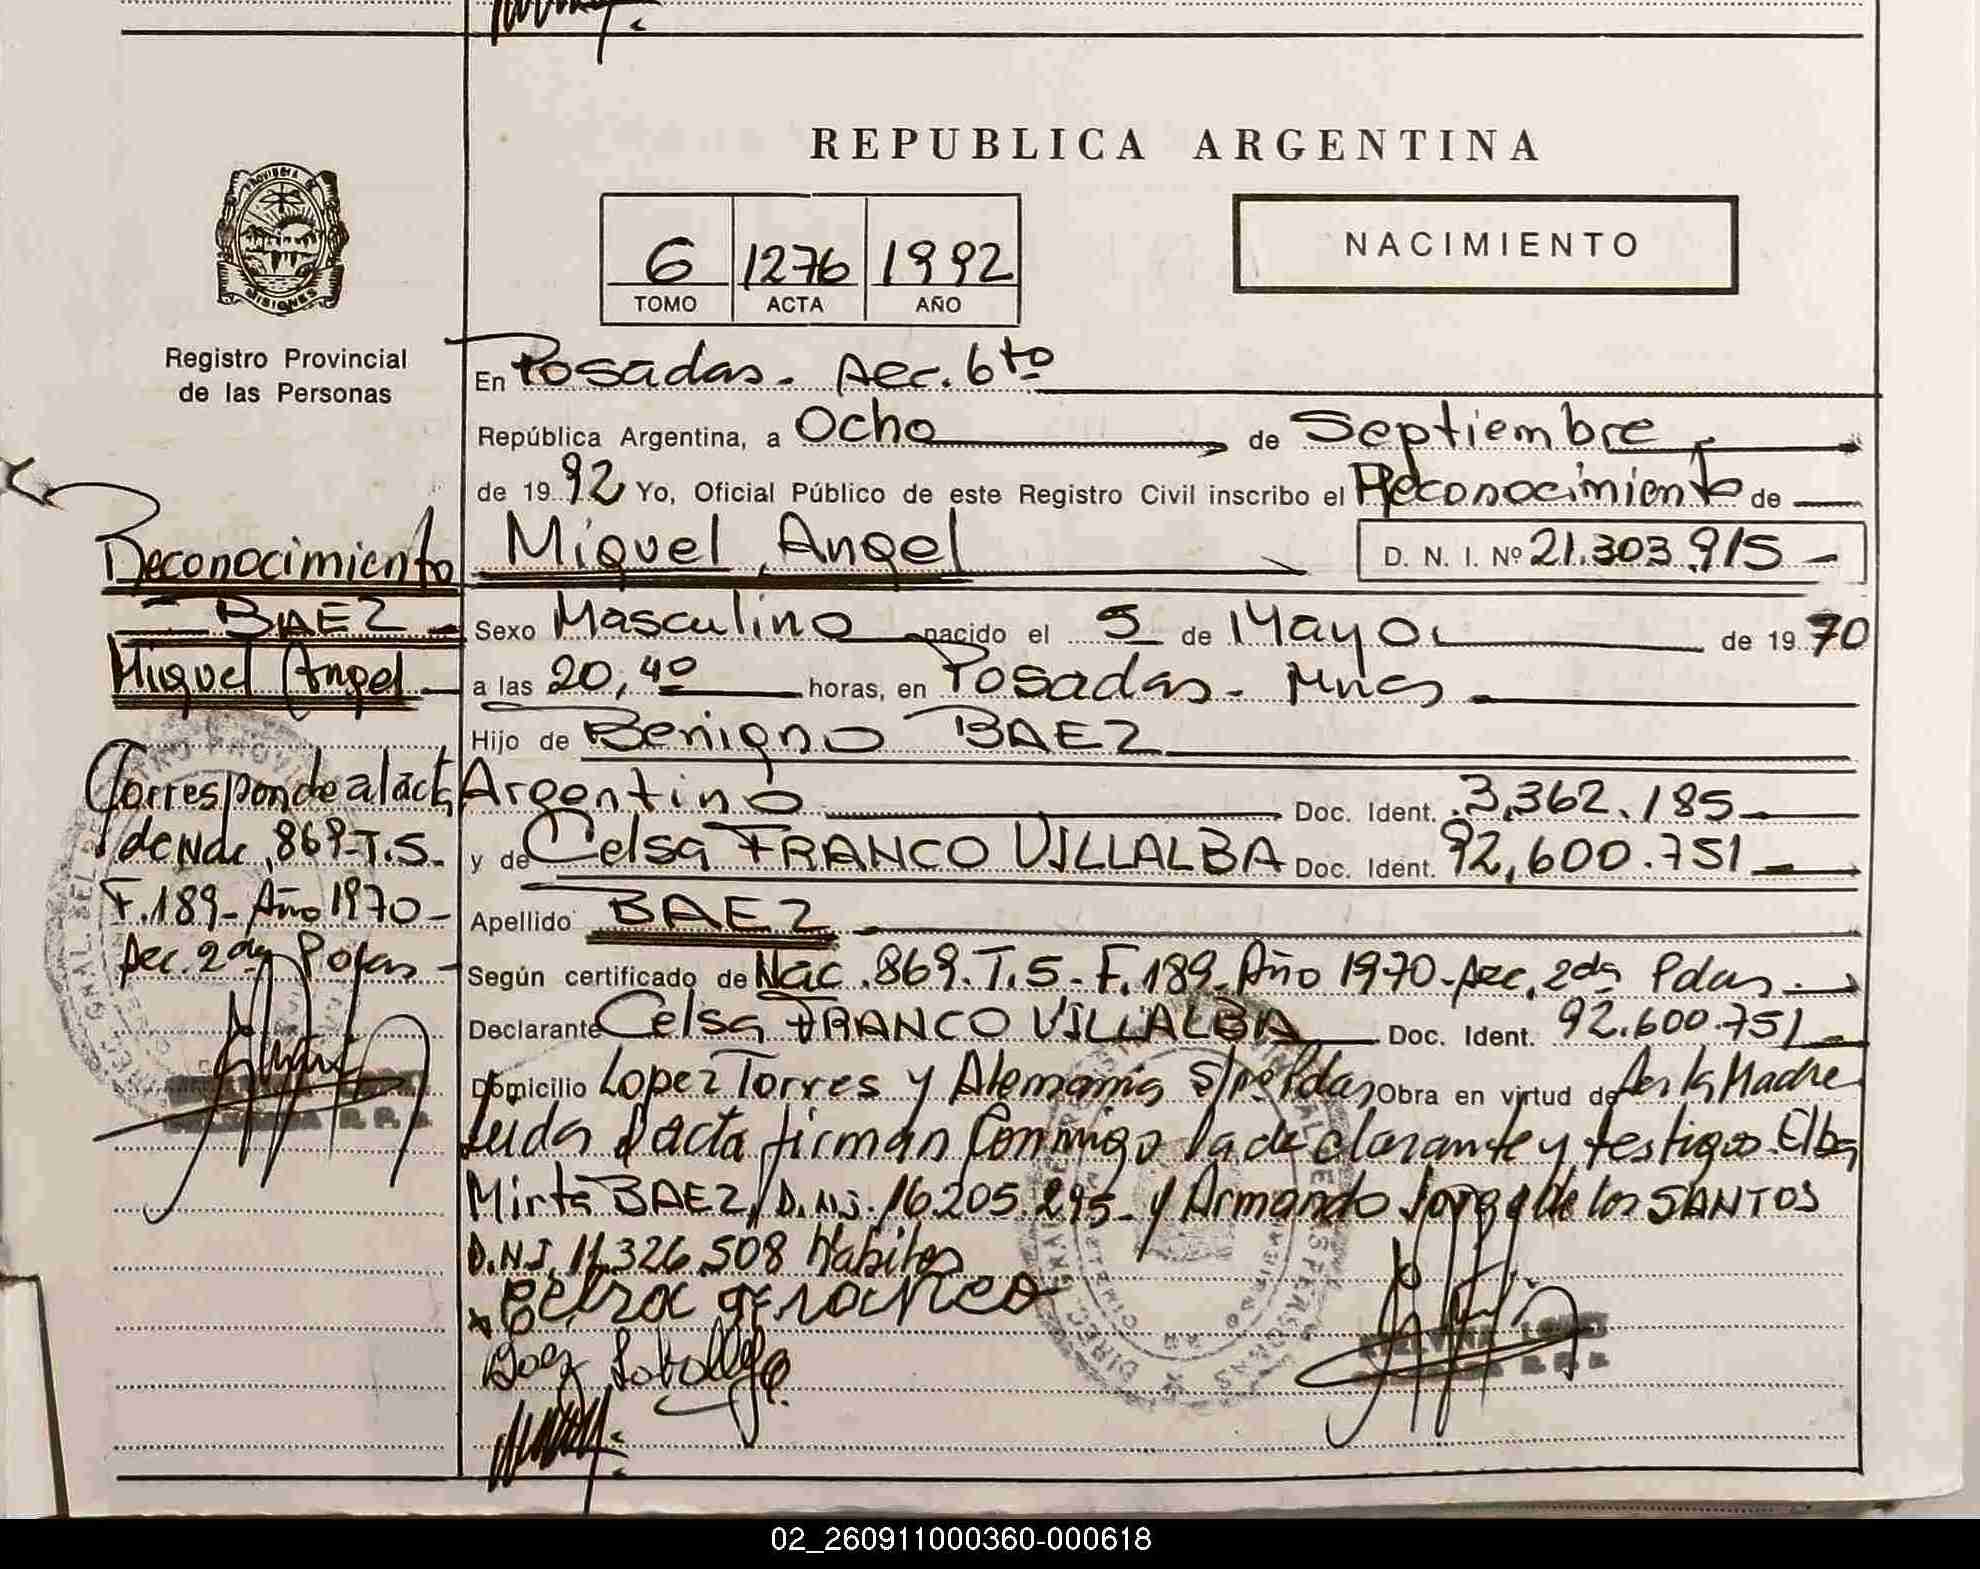 REPUBLICA ARGENTINA
PROVINCIA DE
MISIONES
Registro Provincial
de las Personas
6 1276 1992
TOMO ACTA AÑO
NACIMIENTO
En Posadas. Sec. 6to
República Argentina, a Ocho de Septiembre
de 1992 Yo, Oficial Público de este Registro Civil inscribo el Reconocimiento de
Miguel Angel D. N. I. Nº 21.303.915-
Sexo Masculino nacido el 5 de Mayo de 1970
a las 20,40 horas, en Posadas - Mnes
Hijo de Benigno BAEZ
Argentino Doc. Ident. 3.362.185
y de Celsa FRANCO VILLALBA Doc. Ident. 92.600.751
Apellido BAEZ
Según certificado de Nac. 869. T.5 - F. 189 - Año 1970 - Sec. 2da Pdas.
Declarante Celsa FRANCO VILLALBA Doc. Ident. 92.600.751
Domicilio Lopez Torres y Alemania S/nº Pdas Obra en virtud de Ser la Madre
Leida l acta firman Conmigo la declarante y testigos Elba
Mirta BAEZ, D.N.I. 16.205.295 - y Armando Jorge de los SANTOS
D.N.I. 11.326.508 Habiles
Reconocimiento
BAEZ
Miguel Angel
Corresponde al acta
de Nac. 869-T.5-
F. 189- Año 1970-
Sec. 2da Posas-
02_260911000360-000618